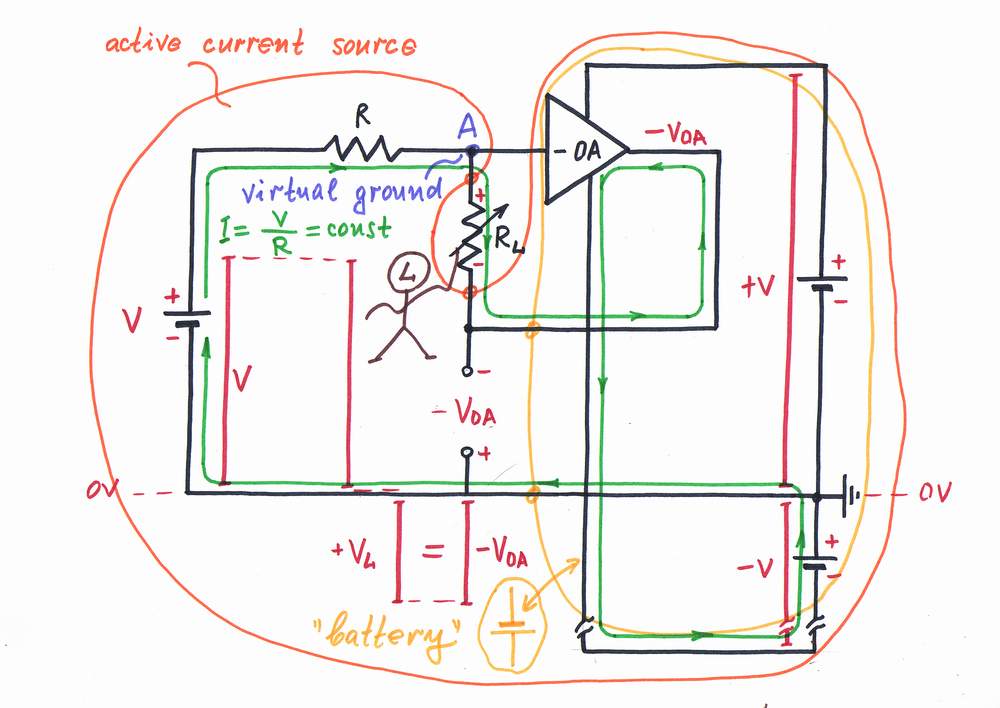 active current source
R
A
-VOA
- OA
virtual ground
+
I = V/R = const
RL
-
L
+V
+
-
+
V
-
V
-
- VOA
+
0V
0V
+VL = -VOA
-V
+
-
"battery"